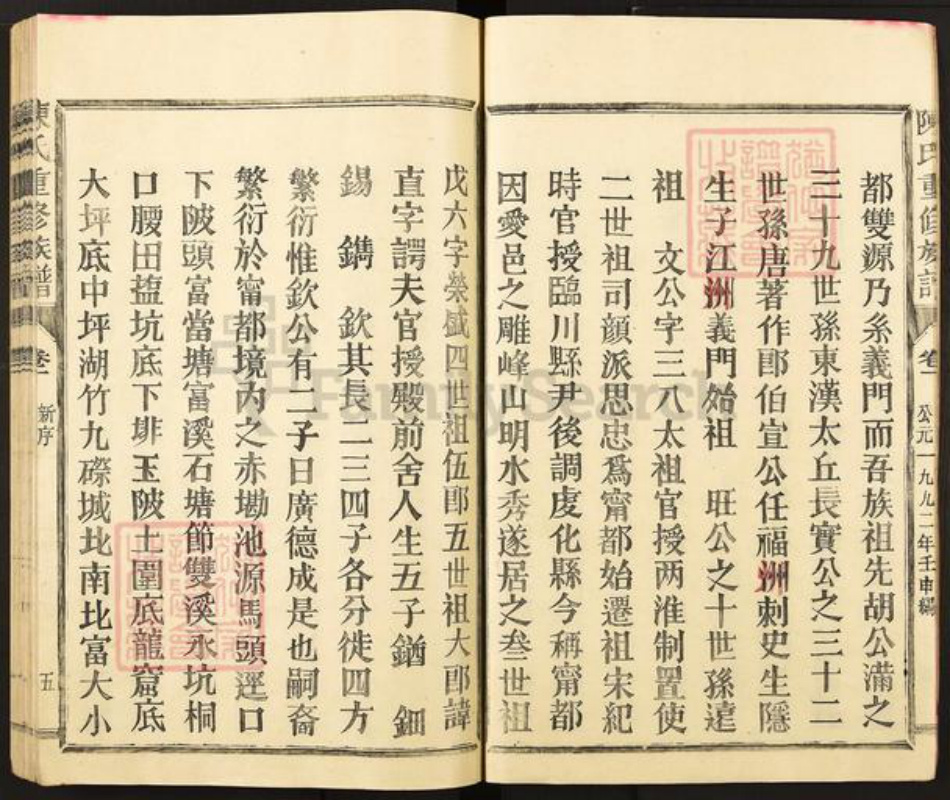 都雙源乃糸義門而吾族祖先胡公滿之
三十九世孫東漢太丘長實公之三十二
世孫唐著作郎伯宣公任福洲刺史生隱
生子江洲義門始祖　旺公之十世孫遠
祖　文公字三八太祖官授两淮制置使
二世祖司顔派思忠爲甯都始遷祖宋紀
時官授臨川縣尹後調虔化縣今稱甯都
因愛邑之雕峰山明水秀遂居之叁世祖
戊六字榮盛四世祖伍郎五世祖大郎諱
直字諤夫官授殿前舍人生五子鏥　鈿
錫　鐫　欽其長二三四子各分徙四方
繁衍惟欽公有二子曰廣德成是也嗣裔
繁衍於甯都境內之赤塅池源馬頭逕口
下陂頭富當塘富溪石塘節雙溪永坑桐
口腰田䀋坑底下排玉陂土圍底龍窟底
大坪底中坪湖竹九磜城北南北富大小
陳氏重修族譜
卷一
公元一九九二年壬申編
陳氏重修族譜
卷一
新序
五
FamilySearch